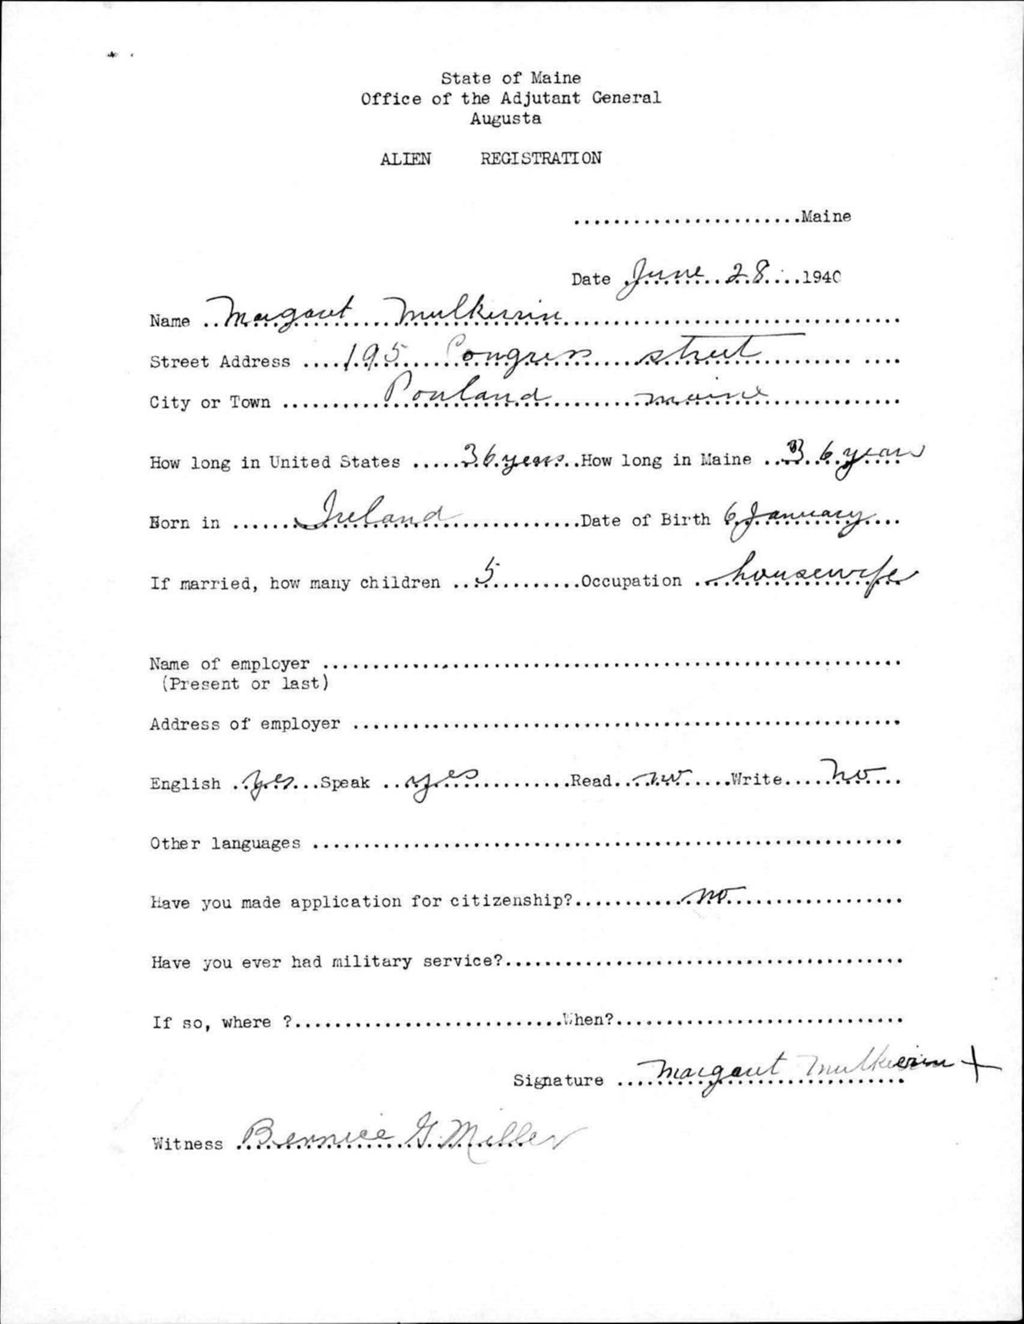 State of Maine
Office of the Adjutant General
Augusta
ALIEN REGISTRATION
.......................Maine
Date June 28 1940
Name Margaret Mulkerrin
Street Address 195 Congress street
City or Town Portland maine
How long in United States 36 years How long in Maine 36 years
Born in Ireland Date of Birth 6 January
If married, how many children 5 Occupation housewife
Name of employer
(Present or last)
Address of employer
English yes Speak yes Read no Write no
Other languages
Have you made application for citizenship? no
Have you ever had military service?
If so, where ? When?
Signature Margaret Mulkerrin +
Witness Bernice G. Miller